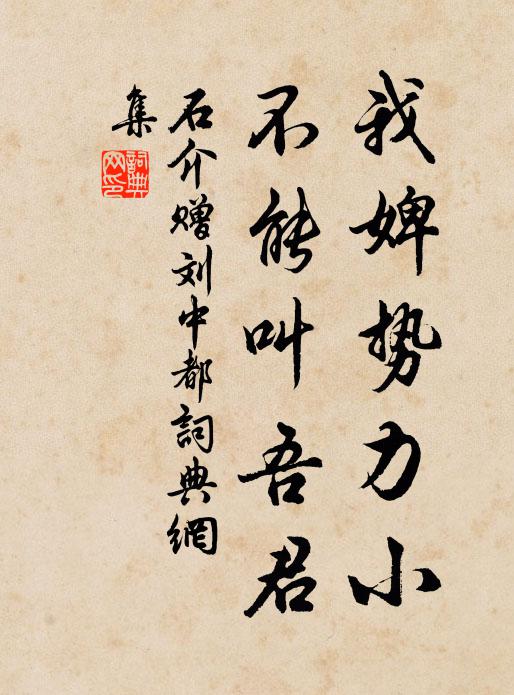 我婢势力小
不能叫吾君
石介赠刘中都詞典網
集
詞典网印